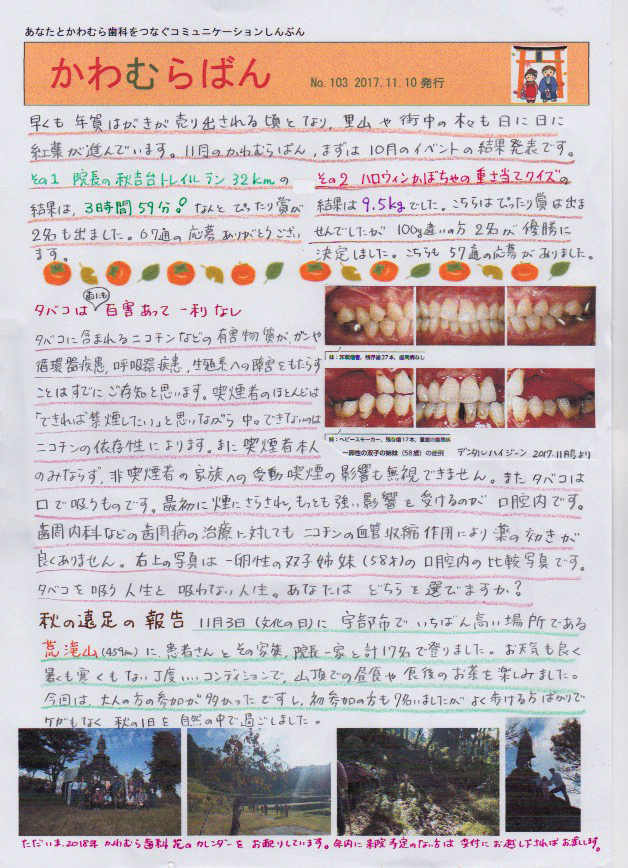 あなたとかわむら歯科をつなぐコミュニケーションしんぶん
かわむらばん
No.103 2017.11.10 発行
早くも 年賀はがきが 売り出される 頃 と なり、里山 や 街中の 木々も 日に 日に
紅葉が 進んでいます。11月の かわむらばん、まずは 10月の イベントの 結果発表です。
その1 院長の 秋吉台トレイルラン 32kmの
結果は、3時間59分! なんと ぴったり賞が
2名も 出ました。67通の 応募 ありがとうござい
ます。
その2 ハロウィンかぼちゃの 重さ当てクイズの
結果は 9.5kgでした。こちらは ぴったり賞は 出ま
せんでしたが 100g違いの方 2名が 優勝に
決定しました。こちらも 57通の 応募が ありました。
タバコは 歯にも 百害あって 一利なし
タバコに 含まれる ニコチンなどの 有害物質が、ガンや
循環器疾患、呼吸器疾患、生殖系への 障害をもたらす
ことは すでに ご存知と 思います。喫煙者の ほとんどは
「できれば 禁煙したい」と 思いながら 中々できないのは
ニコチンの 依存性に よります。また 喫煙者本人
のみならず、非喫煙者の 家族への 受動喫煙の 影響も 無視できません。また タバコは
口で 吸うものです。最初に 煙にさらされ、もっとも 強い 影響を 受けるのが 口腔内です。
歯周内科などの 歯周病の 治療に対しても ニコチンの 血管収縮作用により 薬の 効きが
良くありません。右上の 写真は 一卵性の 双子姉妹(58才)の 口腔内の 比較写真です。
タバコを 吸う 人生と 吸わない 人生。あなたは どちらを 選びますか?
妹:非喫煙者、残存歯27本、歯周病なし
姉:ヘビースモーカー、残存歯17本、重度の歯周病
一卵性の双子の姉妹(58歳)の症例
デンタルハイジーン 2017.11月号より
秋の遠足の報告 11月3日(文化の日)に 宇部市で いちばん高い場所である
荒滝山(459m)に、患者さんと その家族、院長一家と 計17名で 登りました。お天気も良く
暑くも 寒くも ない 丁度いい コンディションで、山頂での 昼食や 食後のお茶を 楽しみました。
今回は、大人の方の 参加が 多かったですし、初参加の方も 7名いましたが よく歩ける方ばかりで
ケガもなく 秋の1日を 自然の中で 過ごしました。
ただいま、2018年 かわむら歯科 花のカレンダーを お配りしています。年内に 来院予定のない方は 受付に お越し下されば お渡しします。